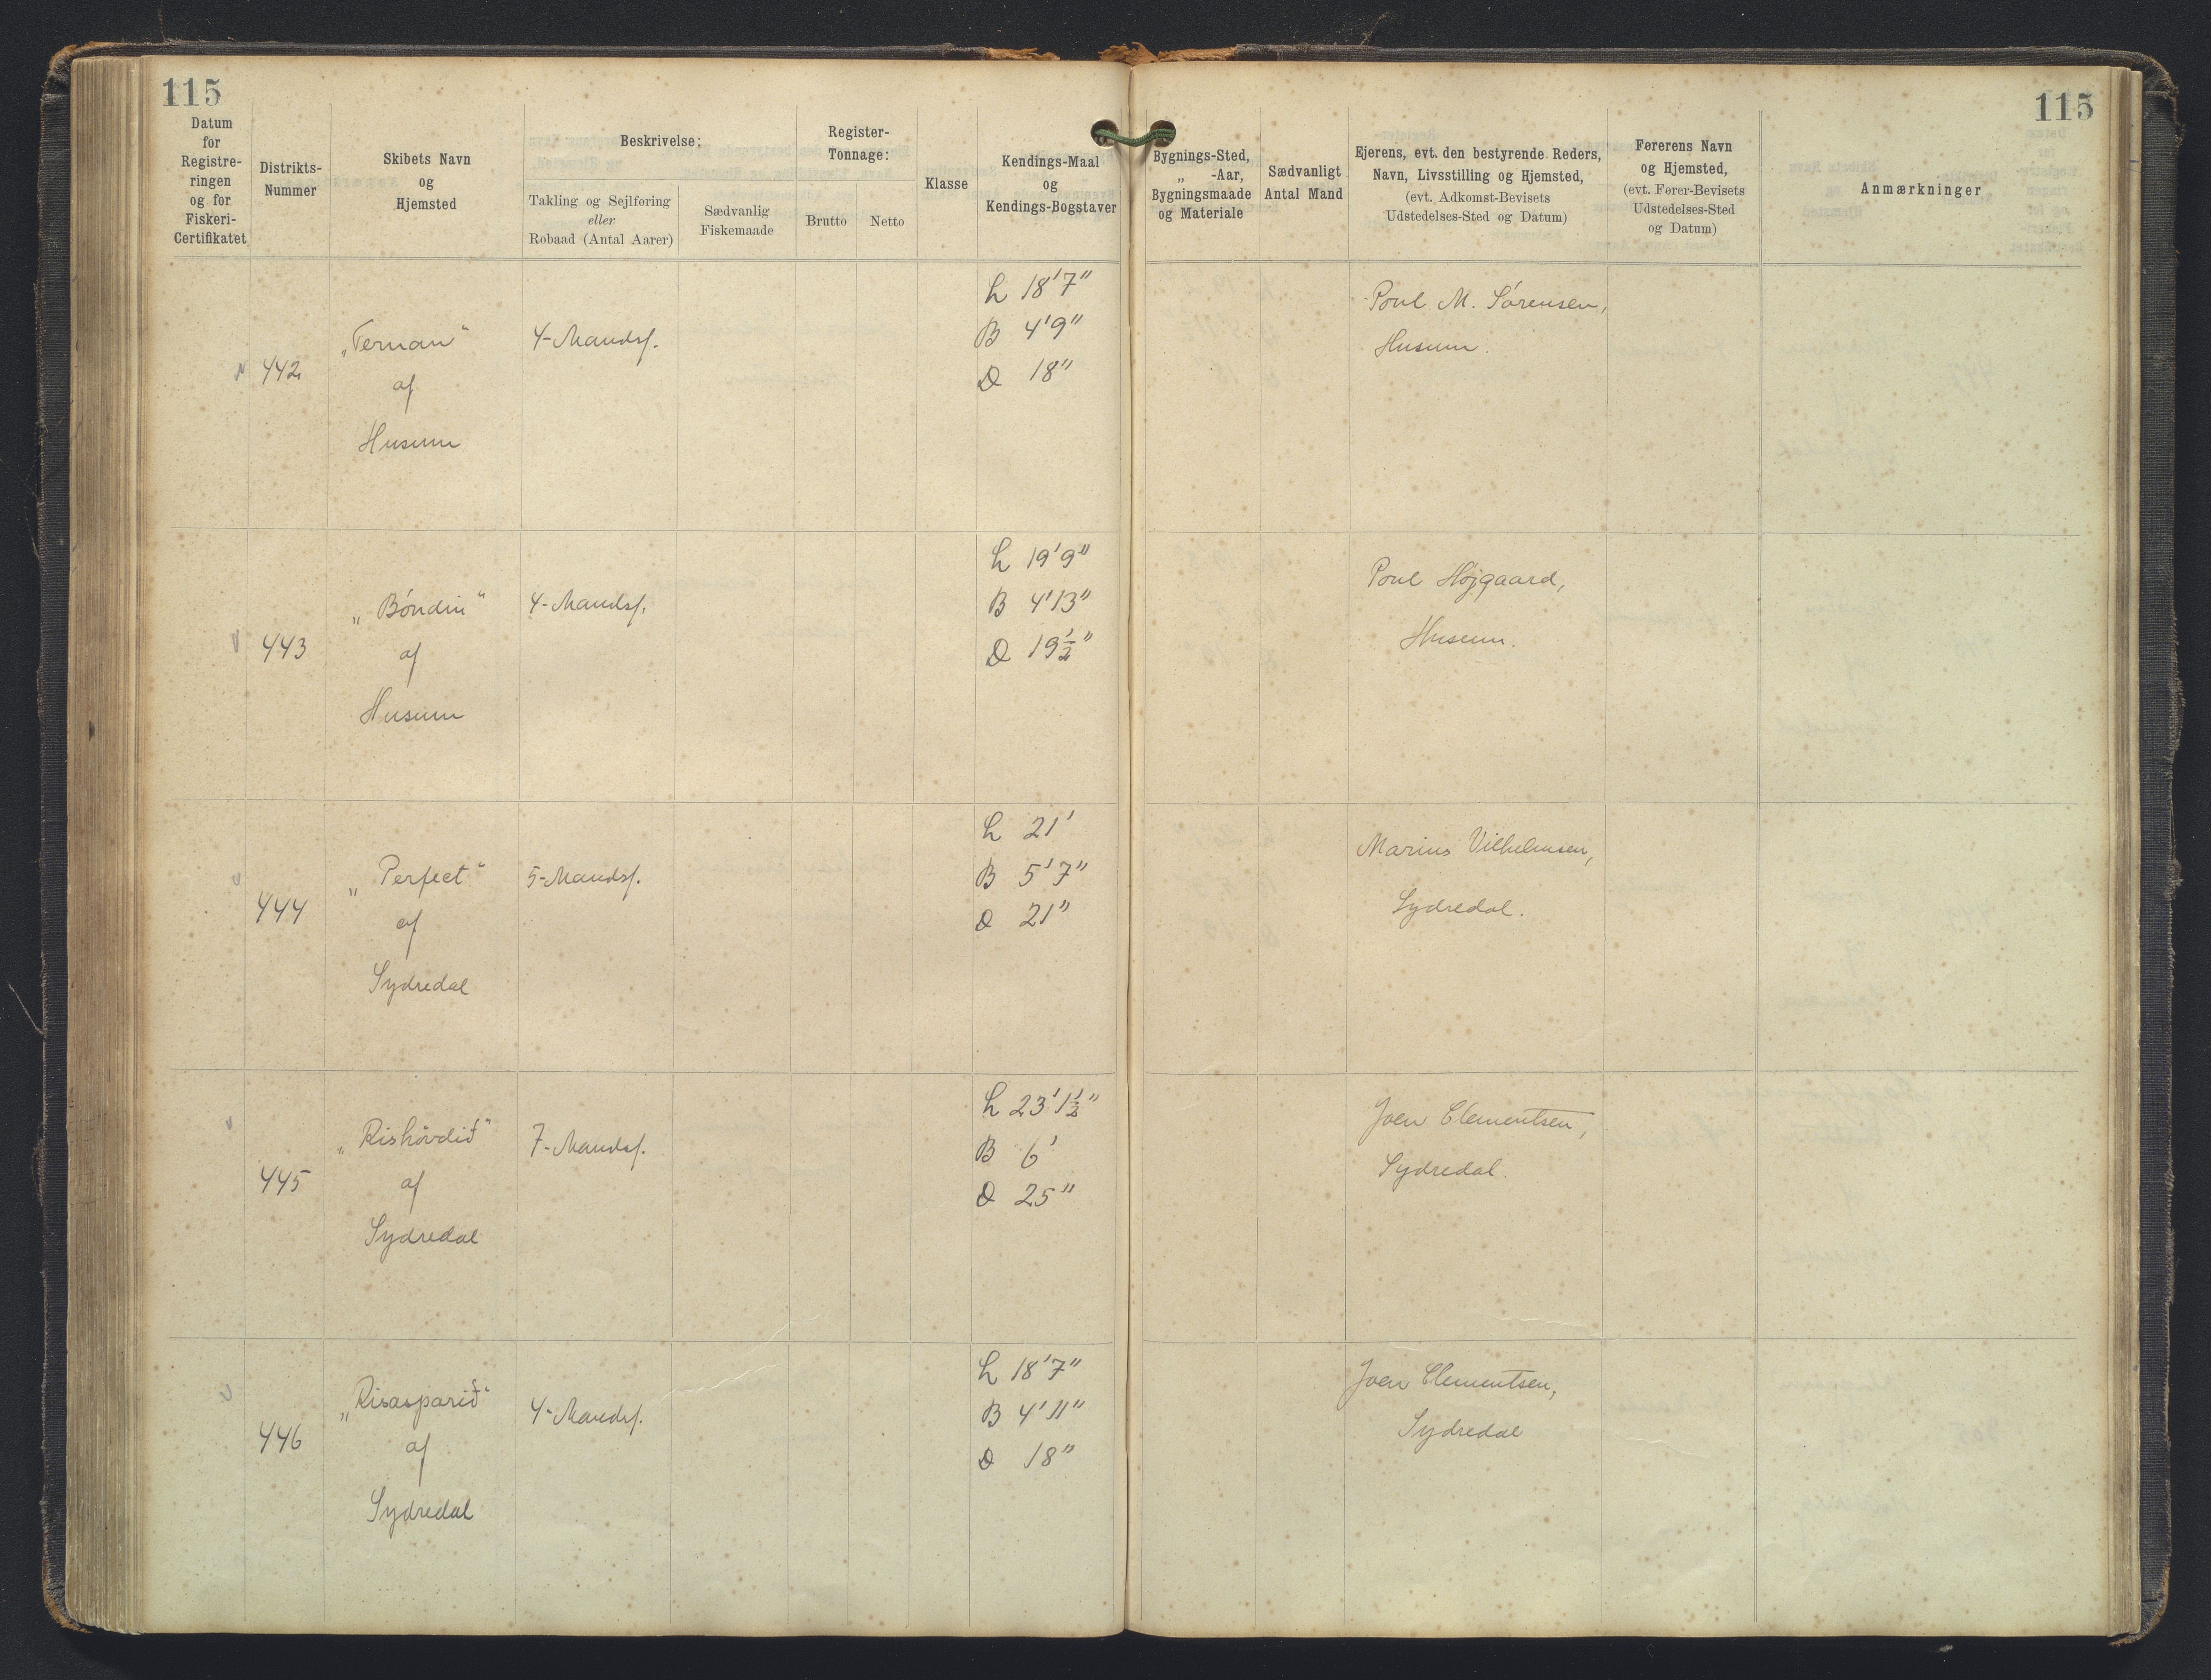 115
115
Datum
for
Registre-
ringen
og for
Fiskeri-
Certifikatet
Distrikts-
Nummer
Skibets Navn
og
Hjemsted
Beskrivelse:
Takling og Sejlføring
eller
Robaad (Antal Aarer)
Sædvanlig
Fiskemaade
Register-
Tonnage:
Brutto
Netto
Klasse
Kendings-Maal
og
Kendings-Bogstaver
Bygnings-Sted,
„ -Aar,
Bygningsmaade
og Materiale
Sædvanligt
Antal Mand
Ejerens, evt. den bestyrende Reders,
Navn, Livsstilling og Hjemsted,
(evt. Adkomst-Bevisets
Udstedelses-Sted og Datum)
Førerens Navn
og Hjemsted,
(evt. Fører-Bevisets
Udstedelses-Sted
og Datum)
Anmærkninger
442
„Ternan"
af
Husum
4-Mandsf.
L 18'7"
B 4'9"
D 18"
Poul M. Sórensen,
Husum.
443
„Bóndin"
af
Husum
4-Mandsf.
L 19'9"
B 4'13"
D 19½"
Poul Højgaard,
Husum.
444
„Perfect"
af
Sydredal
5-Mandsf.
L 21'
B 5'7"
D 21"
Marius Vilhelmsen,
Sydredal.
445
„Rishövdið"
af
Sydredal
7-Mandsf.
L 23'1½"
B 6'
D 25"
Joen Clementsen,
Sydredal.
446
„Risasparið"
af
Sydredal
4-Mandsf.
L 18'7"
B 4'11"
D 18"
Joen Clementsen,
Sydredal